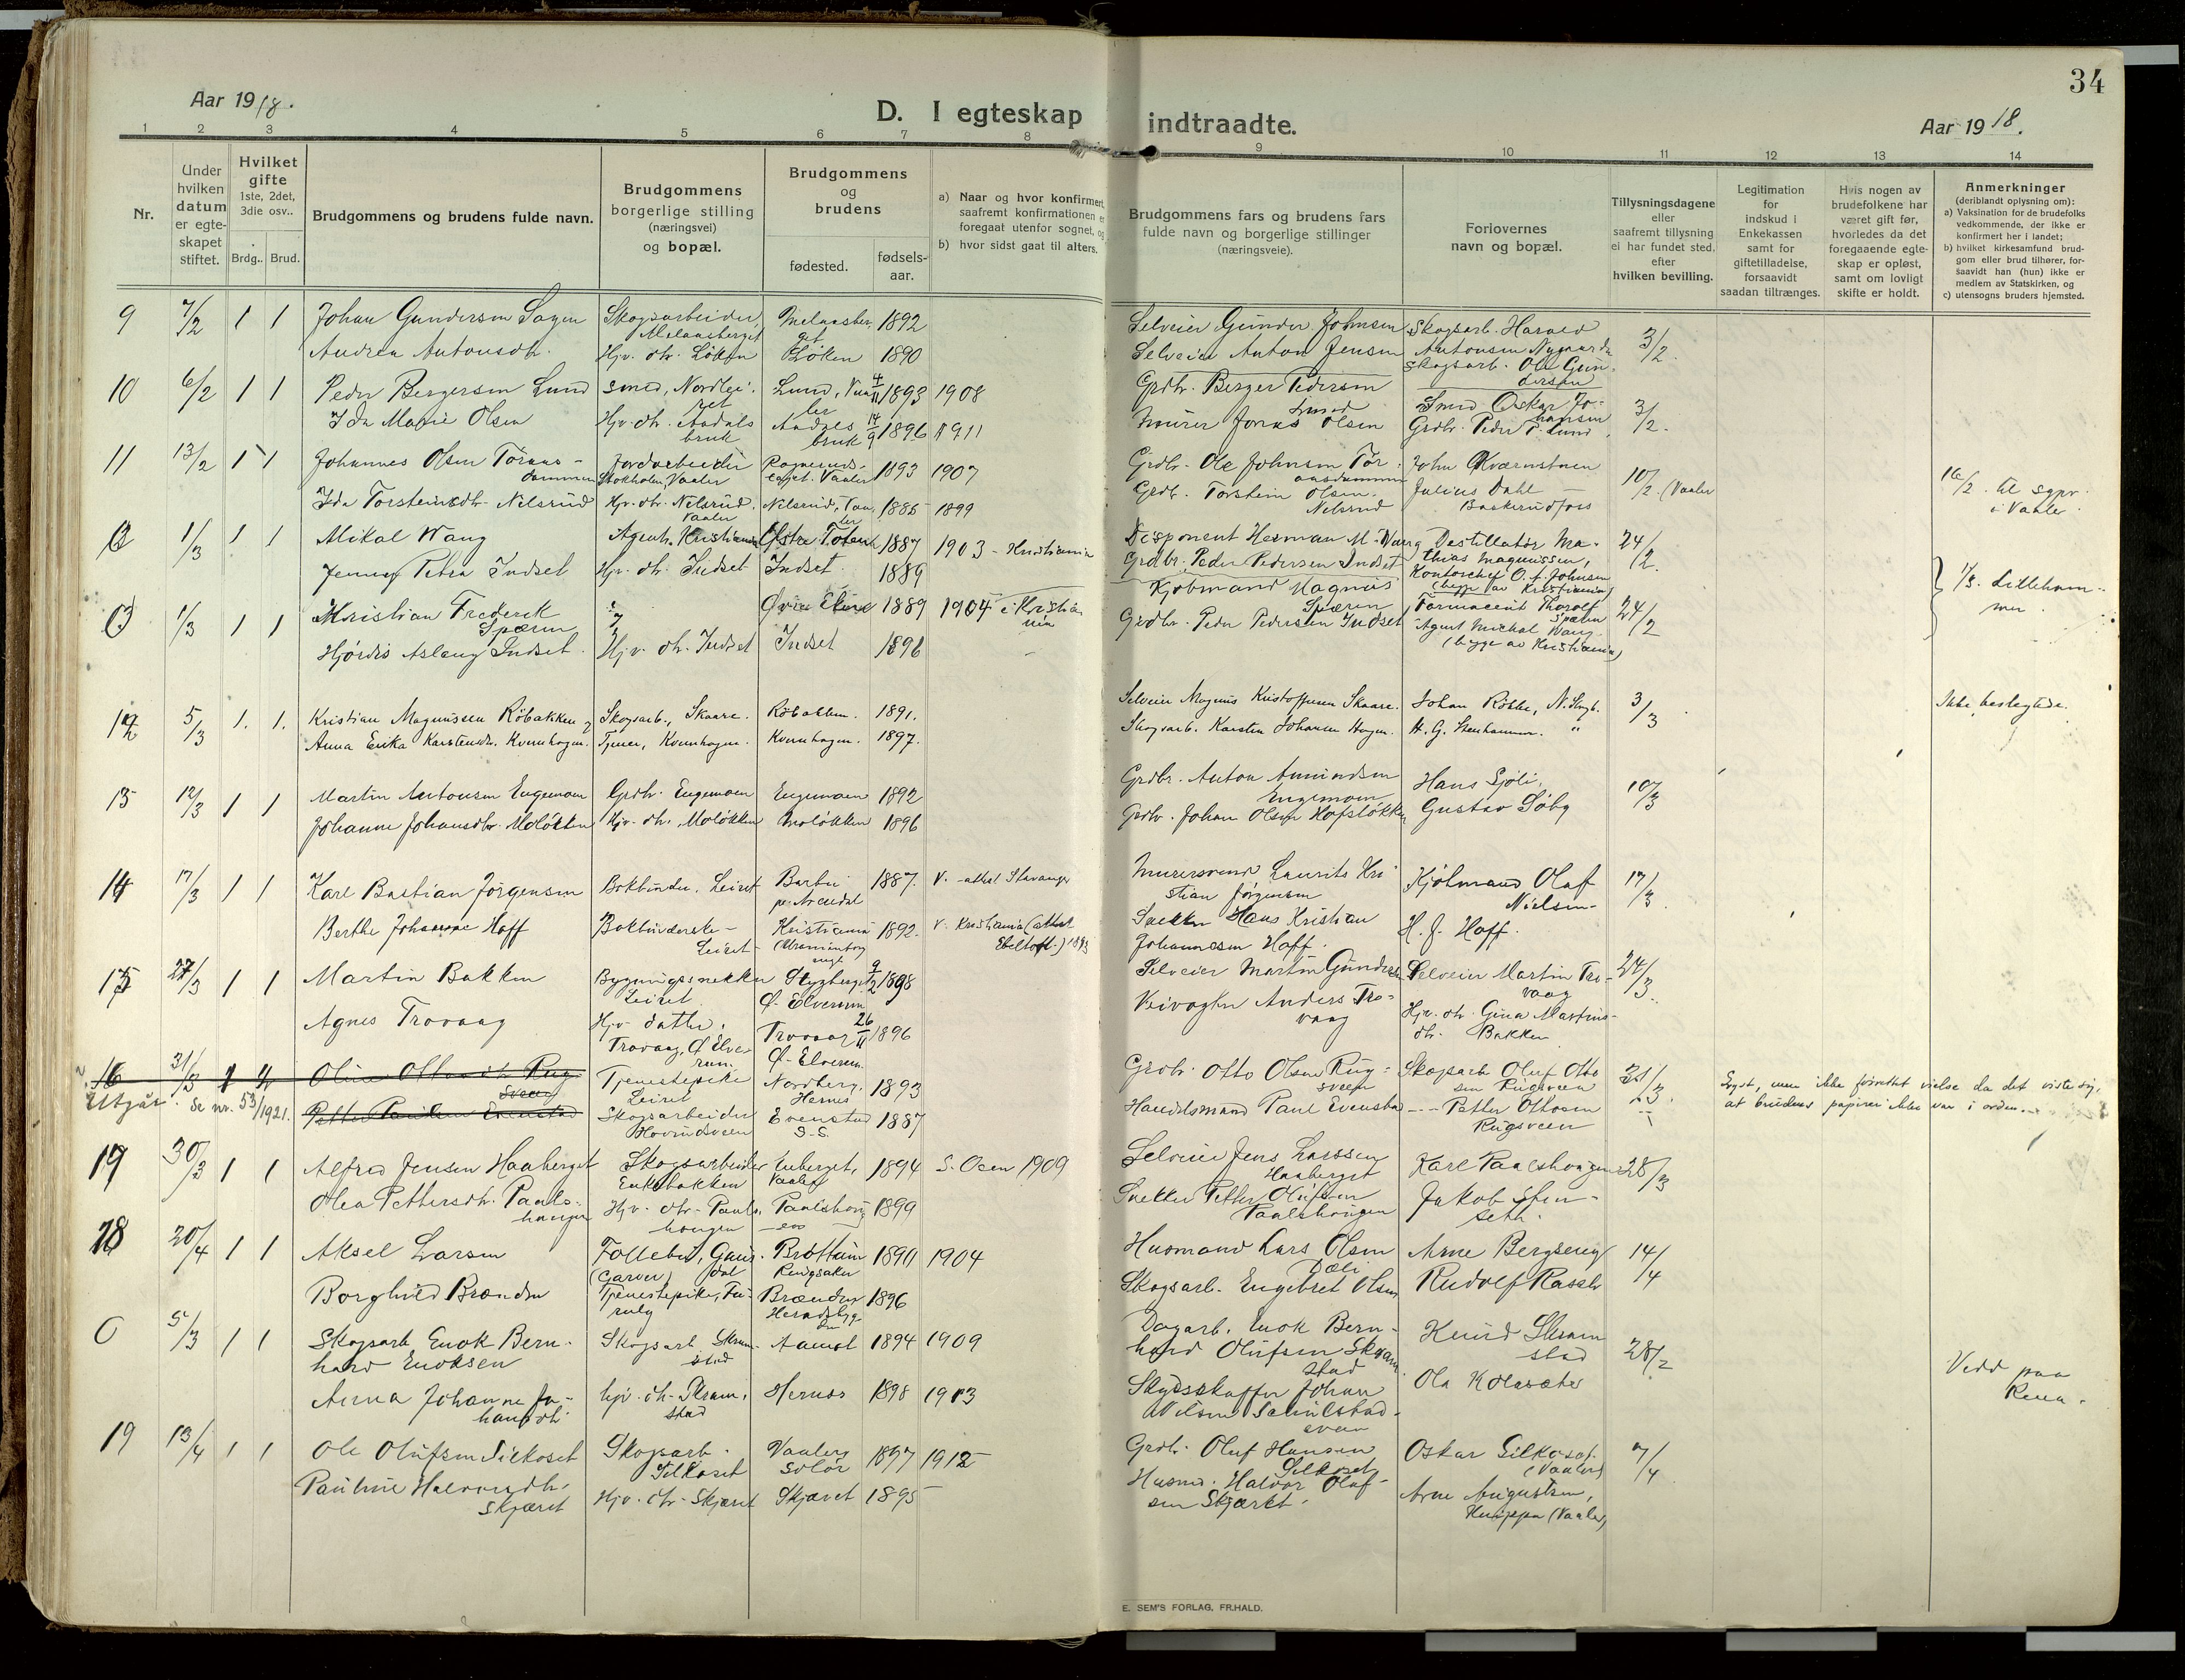 Aar 1918.
D. I egteskap indtraadte.
Aar 1918.
34
1 2 3 4 5 6 7 8 9 10 11 12 13 14
Nr.
Under hvilken datum er egteskapet stiftet.
Hvilket gifte 1ste, 2det, 3die osv..
Brdg.. Brud.
Brudgommens og brudens fulde navn.
Brudgommens borgerlige stilling (næringsvei) og bopæl.
Brudgommens og brudens
fødested.
fødsels-aar.
a) Naar og hvor konfirmert, saafremt konfirmationen er foregaat utenfor sognet, og
b) hvor sidst gaat til alters.
Brudgommens fars og brudens fars fulde navn og borgerlige stillinger (næringsveie).
Forlovernes navn og bopæl.
Tillysningsdagene eller saafremt tillysning ei har fundet sted, efter hvilken bevilling.
Legitimation for indskud i Enkekassen samt for giftetilladelse, forsaavidt saadan tiltrænges.
Hvis nogen av brudefolkene har været gift før, hvorledes da det foregaaende egteskap er opløst, samt om lovligt skifte er holdt.
Anmerkninger (deriblandt oplysning om):
a) Vaksination for de brudefolks vedkommende, der ikke er konfirmert her i landet;
b) hvilket kirkesamfund brudgom eller brud tilhører, forsaavidt han (hun) ikke er medlem av Statskirken, og
c) utensogns bruders hjemsted.
9 7/2 1 1 Johan Gundersen Sagen Skogsarbeider 1892 Selveier Gunder Johnsen Skogsarb. Harald 3/2.
Andrea Antonsdtr. Hjv. dtr. Løken Løken 1890 Selveier Anton Jensen Antonsen Nygaard
Skogsarb. Ole Gundersen
10 6/2 1 1 Peder Bergersen Lund Smed, Lund, 4/11 1893 1908 Grdbr. Berger Pedersen Lund Smed Oskar Johansen 3/2.
Ida Marie Olsen Hjv. dtr. Aadals bruk Aadals bruk 14/9 1896 1911 Murer Jonas Olsen Grdbr. Peder P. Lund
11 13/2 1 1 Johannes Olsen Töraasdammen Jordarbeider Stokholm, Vaaler Vaaler 1893 1907 Grdbr. Ole Johnsen John Kværnstuen 10/2. (Vaaler 16/2. i Vaaler
Ida Torsteinsdtr. Nilsrud Hjv. dtr. Nilsrud. Vaaler Nilsrud, Vaaler 1885 1899 Grdb. Torstein Olsen. Nilsrud Julius Dahl Baskerudfoss
1/3 1 1 Mikal Wang Agent, Kristiania Østre Toten 1887 1903 - Kristiania Disponent Herman M. Wang Destillatør Mathias Magnussen, 24/2.
Jenny Petra Indset Hjv. dtr. Indset Indset. 1889 Grdbr. Peder Pedersen Indset Kontorchef O. A. Johnsen (begge av Kristiania)
} 1/3. Lillehammer
1/3 1 1 Kristian Frederik Spæren 1889 1904 i Kristiania Kjøbmand Magnus Spæren Farmaceut Thorolf Spæren 24/2
Hjørdis Aslaug Indset. Hjv. dtr. Indset Indset 1896 Grdbr. Peder Pedersen Indset Agent Mickal Wang (begge av Kristiania)
5/3 1. 1. Kristian Magnussen Röbakken Skogsarb., Skaare. Röbakken. 1891. Selveier Magnus Kristoffersen Skaare. Johan 3/3 Ikke beslegtede.
Anna Erika Karstensdtr. Kvernhagen. Tjener, Kvernhagen. Kvernhagen. 1897. Skogsarb. Karsten Johansen Hagen. H. G. Stenhammer. "
15 12/3 1 1 Martin Antonsen Engemoen Grdbr. Engemoen Engemoen 1892 Grdbr. Anton Amundsen Engemoen Hans Sjöli. 10/3
Johanne Johansdtr. Moløkken Hjv. dtr. Moløkken Moløkken 1896 Grdbr. Johan Olsen Hofsløkken Gustav Søby
14 17/3 1 1 Karl Bastian Jörgensen Bokbinder. Leiret Barbu pr. Arendal 1887. V. - attest Stavanger Murersvend Laurits Kristian Jørgensen Kjøbmand Olaf Nielsen 17/3.
Berthe Johanne Hoff Bokbinderske - Leiret - Kristiania 1892. V. Kristiania (attest Snekker Hans Kristian Johannesen Hoff. H. J. Hoff.
15 27/3 1 1 Martin Bakken Bygningssnekker Leiret. Ø. Elverum 9/2 1898 Selveier Martin Gundersen Selveier Martin Trovaag 24/3.
Agnes Trovaag Hjv. datter. Trovaag, Ø. Elverum. Trovaag Ø. Elverum 26/11 1896 Veivogter Anders Trovaag Hjv. dtr. Gina Martinsdtr. Bakken
16 31/3 Oline Ottosdtr. Rugsveen Tjenestepike Leiret Nordberg. Hernes 1893 Grdbr. Otto Olsen Rugsveen Skogsarb. Oluf Ottosen Rugsveen Lyst, men ikke forrettet vielse da det viste sig,
Utgår. Se nr. 53/1921. Petter Paulsen Evenstad Skogsarbeider Evenstad S. S. 1887 Handelsmand Paul Evenstad Petter Ottosen Rugsveen at brudens papirer ikke var i orden.
30/3 1 1 Alfred Jensen Haaberget Skogsarbeider Enkebakken Vaaler 1894 S. Osen 1909 Selveier Jens Larssen Haaberget Karl Paalshaugen 28/3
Olea Pettersdtr. Paalshaugen Hjv. dtr. Paalshaugen Paalshaugen 1899 Snekker Petter Olufsen Paalshaugen Jakob Stenseth.
18 20/4 1 1 Aksel Larsen Follebu, Gausdal (Garver) Brøttum Ringsaker 1890 1904 Husmand Lars Olsen Dæli Arne Bergseng 14/4
Borghild Brænden Tjenestepike, Furuly Brænden Heradsbygden 1896 Skogsarb. Engebret Olsen Rudolf
5/3 1 1 Skogsarb Enok Bernhard Enoksen Skogsarb Skramstad Aamot 1894 1909 Dagarb. Enok Bernhard Olufsen Skramstad Knud Skramstad 28/2
Anna Johanne Johansdtr. hjv. dtr. Skramstad Hernes 1898 1913 Skydsskaffer Johan Nilsen Ola Kolasæter Viet paa Rena.
19 13/4 1 1 Ole Olufsen Silkoset Skogsarb. Silkoset Vaaler Solør 1897 1912 Grdb. Oluf Hansen Silkoset Oskar Silkoset (Vaaler) 7/4
Pauline Halvorsdtr. Skjæret Hjv. dtr. Skjæret Skjæret 1895 Husmd. Halvor Olafsen Skjæret. Arne Augustsen, (Vaaler)
E. SEM'S FORLAG, FR.HALD.